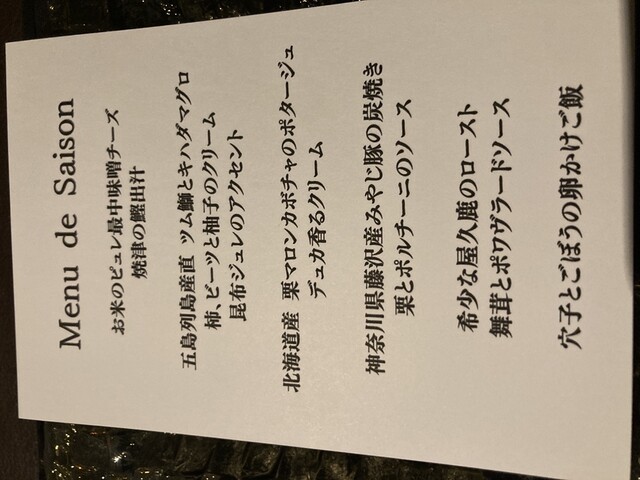 Menu de Saison
お米のピュレ最中味噌チーズ
焼津の鰹出汁
五島列島産直 ツム鰤とキハダマグロ
柿、ビーツと柚子のクリーム
昆布ジュレのアクセント
北海道産 栗マロンカボチャのポタージュ
デュカ香るクリーム
神奈川県藤沢産みやじ豚の炭焼き
栗とポルチーニのソース
希少な屋久鹿のロースト
舞茸とポワヴラードソース
穴子とごぼうの卵かけご飯